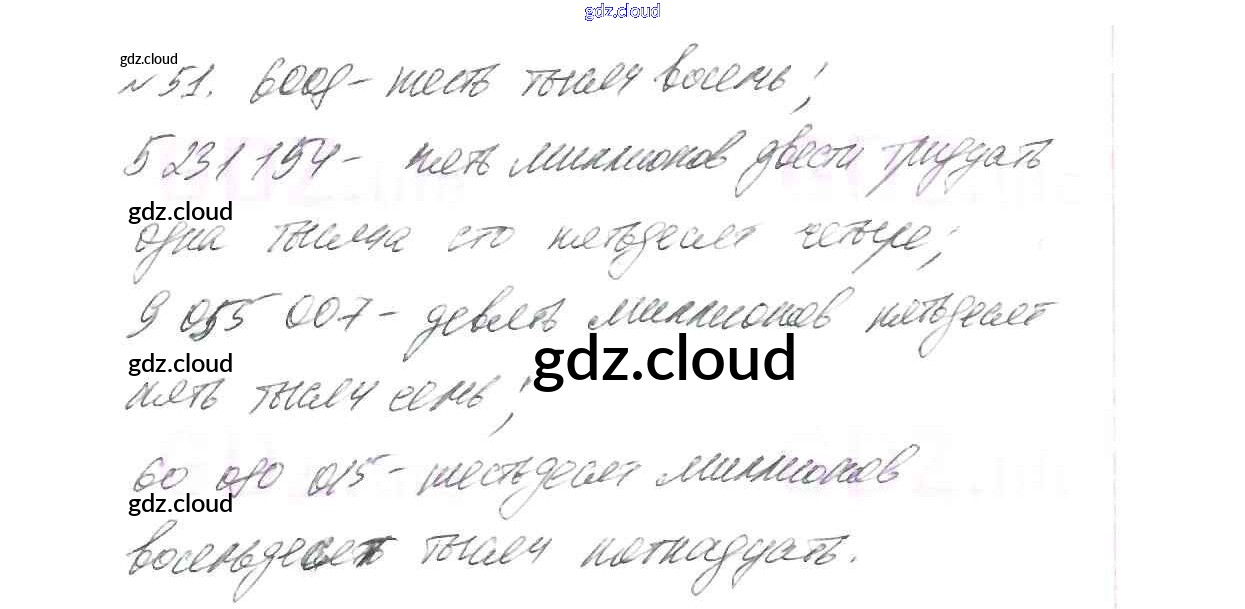 gdz.cloud
gdz.cloud
№51. 6008 - шесть тысяч восемь;
5 231 154 - пять миллионов двести тридцать
gdz.cloud
одна тысяча сто пятьдесят четыре;
9 055 007 - девять миллионов пятьдесят
gdz.cloud
gdz.cloud
пять тысяч семь;
60 080 015 - шестьдесят миллионов
gdz.cloud
восемьдесят тысяч пятнадцать.